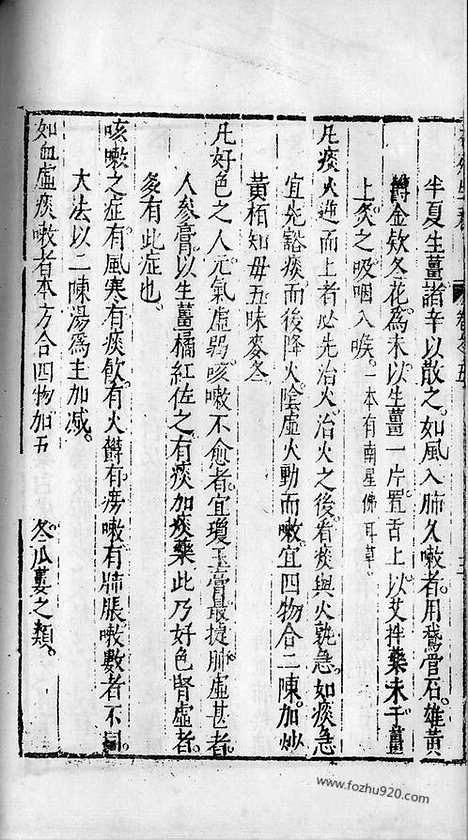 半夏生薑諸辛以散之如風入肺久嗽者用鵞管石雄黄
欝金欵冬花為末以生薑一片置舌上以艾拌藥末于薑
上灸之吸咽入喉一本有南星佛耳草
凡痰火逆而上者必先治火治火之後看痰與火孰急如痰急
宜先豁痰而後降火陰虚火動而嗽宜四物合二陳加炒
黄栢知母五味麥冬
凡好色之人元氣虚弱咳嗽不愈者宜瓊玉膏最捷肺虚甚者
人參膏以生薑橘紅佐之有痰加痰藥此乃好色腎虚者
多有此症也
咳嗽之症有風寒有痰飲有火欝有勞嗽有肺脹嗽數者不同
大法以二陳湯為主加减
如血虚痰嗽者本方合四物加五 冬瓜蔞之類
www.fozhu920.com